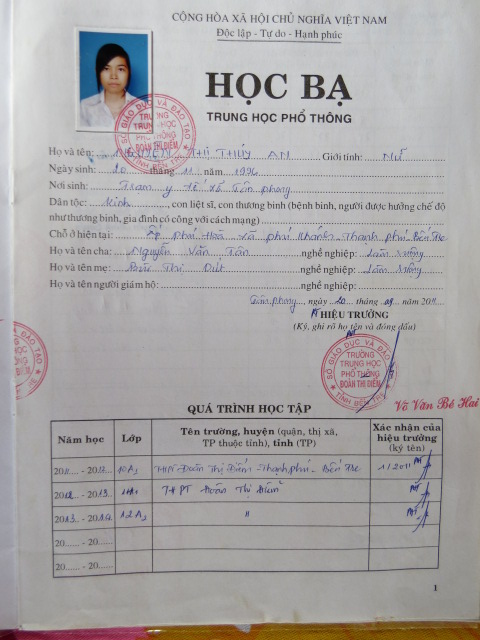 CỘNG HÒA XÃ HỘI CHỦ NGHĨA VIỆT NAM
Độc lập - Tự do - Hạnh phúc
HỌC BẠ
TRUNG HỌC PHỔ THÔNG
SỞ GIÁO DỤC VÀ ĐÀO TẠO
TRƯỜNG
TRUNG HỌC
PHỔ THÔNG
ĐOÀN THỊ ĐIỂM
TỈNH BẾN TRE
Họ và tên: NGUYỄN THỊ THÚY AN Giới tính: NỮ
Ngày sinh: 20 tháng 11 năm 1996
Nơi sinh: Trạm y tế xã Tân phong
Dân tộc: Kinh, con liệt sĩ, con thương binh (bệnh binh, người được hưởng chế độ
như thương binh, gia đình có công với cách mạng)
Chỗ ở hiện tại: Ấp phú Hoà xã phú Khánh - Thạnh phú - Bến Tre
Họ và tên cha: Nguyễn Văn Tân nghề nghiệp: Làm ruộng
Họ và tên mẹ: Thị nghề nghiệp: Làm ruộng
Họ và tên người giám hộ: nghề nghiệp:
Tân phong, ngày 20 tháng 09 năm 2011
HIỆU TRƯỞNG
(Ký, ghi rõ họ tên và đóng dấu)
SỞ GIÁO DỤC VÀ ĐÀO TẠO
TRƯỜNG
TRUNG HỌC
PHỔ THÔNG
ĐOÀN THỊ ĐIỂM
TỈNH BẾN TRE
Võ Văn Bé Hai
QUÁ TRÌNH HỌC TẬP
Năm học Lớp Tên trường, huyện (quận, thị xã, TP thuộc tỉnh), tỉnh (TP) Xác nhận của hiệu trưởng (ký tên)
2011 - 2012 10A1 THPT Đoàn Thị Điểm - Thạnh phú - Bến Tre
2012 - 2013 THPT Đoàn Thị Điểm
2013 - 2014 12A2 "
20...... - 20......
20...... - 20......
1